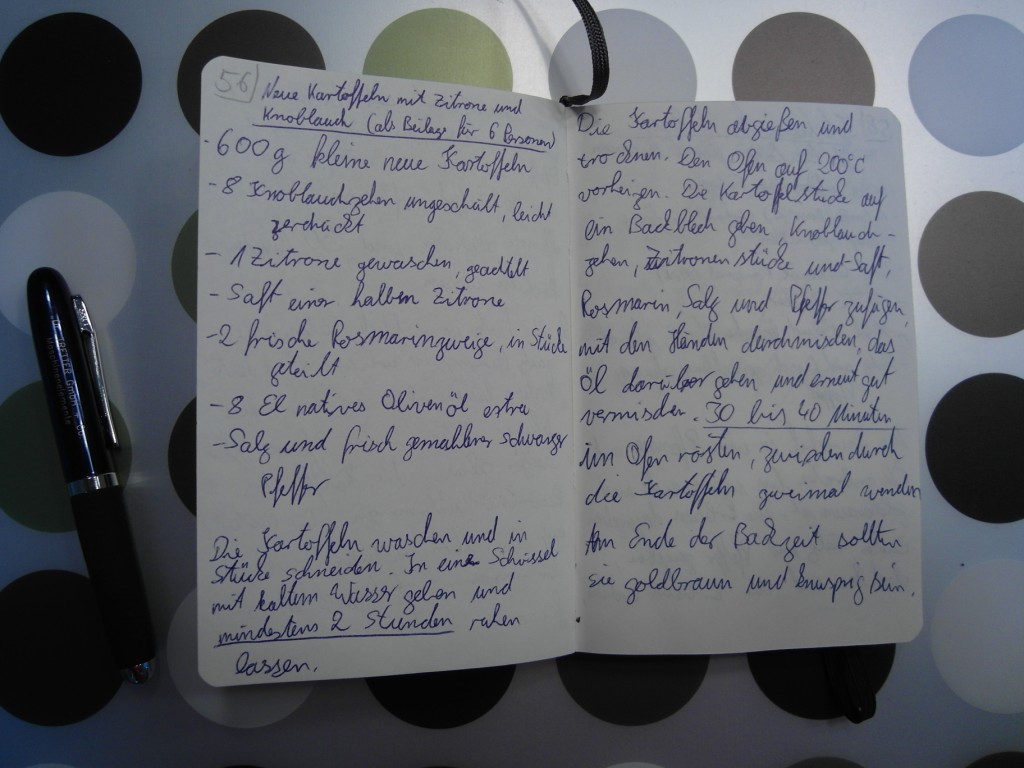 56
Neue Kartoffeln mit Zitrone und
Knoblauch (als Beilage für 6 Personen)
- 600g kleine neue Kartoffeln
- 8 Knoblauchzehen ungeschält, leicht
zerdrückt
- 1 Zitrone gewaschen, geachtelt
- Saft einer halben Zitrone
- 2 frische Rosmarinzweige, in Stücke
geteilt
- 8 El natives Olivenöl extra
- Salz und frisch gemahlener schwarzer
Pfeffer
Die Kartoffeln waschen und in
Stücke schneiden. In eine Schüssel
mit kaltem Wasser geben und
mindestens 2 Stunden ruhen
lassen.
Die Kartoffeln abgießen und
trocknen. Den Ofen auf 200°C
vorheizen. Die Kartoffelstücke auf
ein Backblech geben, Knoblauch-
zehen, Zitronenstücke und -Saft,
Rosmarin, Salz und Pfeffer zufügen,
mit den Händen durchmischen, das
Öl darüber geben und erneut gut
vermischen. 30 bis 40 Minuten
im Ofen rösten, zwischendurch
die Kartoffeln zweimal wenden
Am Ende der Backzeit sollten
sie goldbraun und knusprig sein.